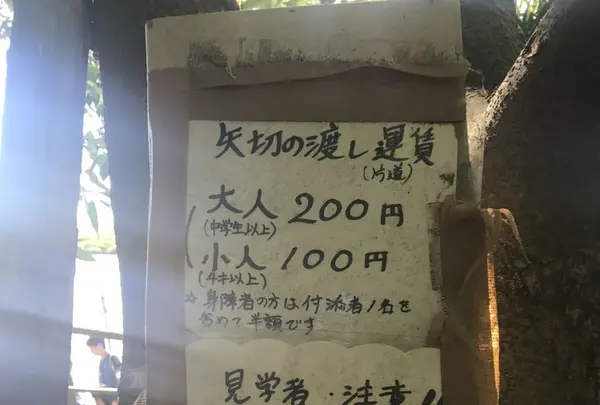 矢切の渡し運賃
(片道)
大人 200円
(中学生以上)
小人 100円
(4才以上)
☆身障者の方は付添者1名を
含めて半額です
見学者・注意!!